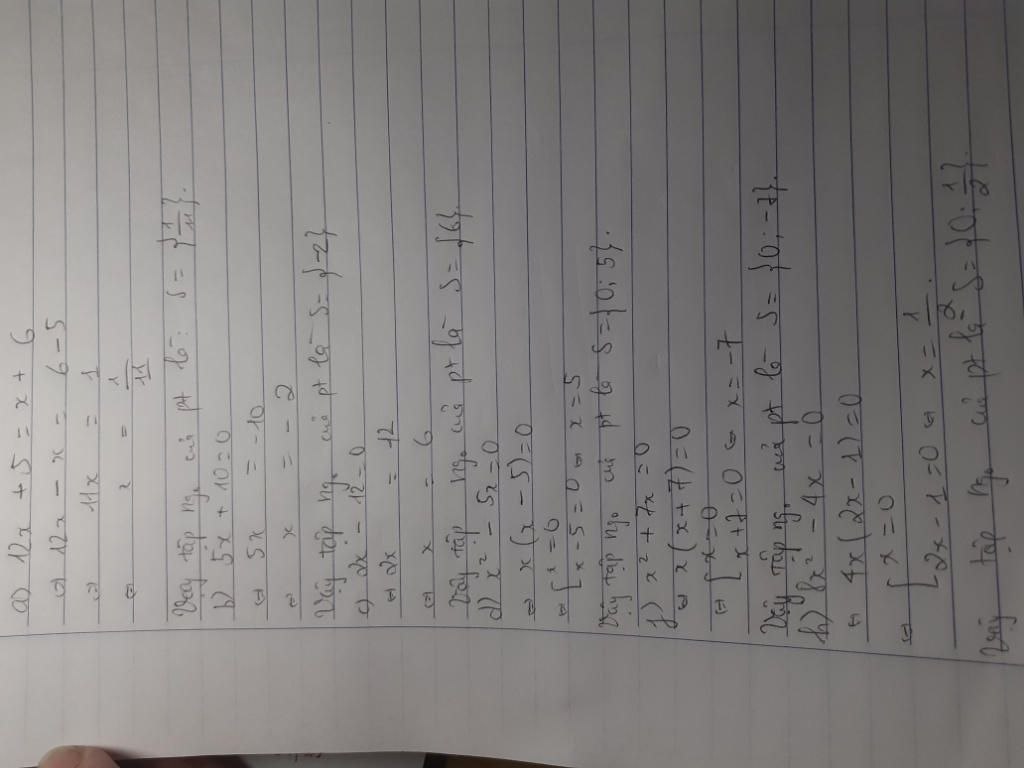 a) 12x + 5 = x + 6
⇔ 12x - x = 6 - 5
⇔ 11x = 1
⇔ x = 1/11
Vậy tập ng₀ của pt là: S = {1/11}.
b) 5x + 10 = 0
⇔ 5x = -10
⇔ x = -2
Vậy tập ng₀ của pt là S = {-2}
c) 2x - 12 = 0
⇔ 2x = 12
⇔ x = 6
Vậy tập ng₀ của pt là S = {6}.
d) x² - 5x = 0
⇔ x(x - 5) = 0
⇔ [ x = 0
x - 5 = 0 ⇔ x = 5
Vậy tập ng₀ của pt là S = {0; 5}.
f) x² + 7x = 0
⇔ x(x + 7) = 0
⇔ [ x = 0
x + 7 = 0 ⇔ x = -7
Vậy tập ng₀ của pt là S = {0; -7}.
h) 8x² - 4x = 0
⇔ 4x(2x - 1) = 0
⇔ [ x = 0
2x - 1 = 0 ⇔ x = 1/2.
Vậy tập ng₀ của pt là S = {0; 1/2}.